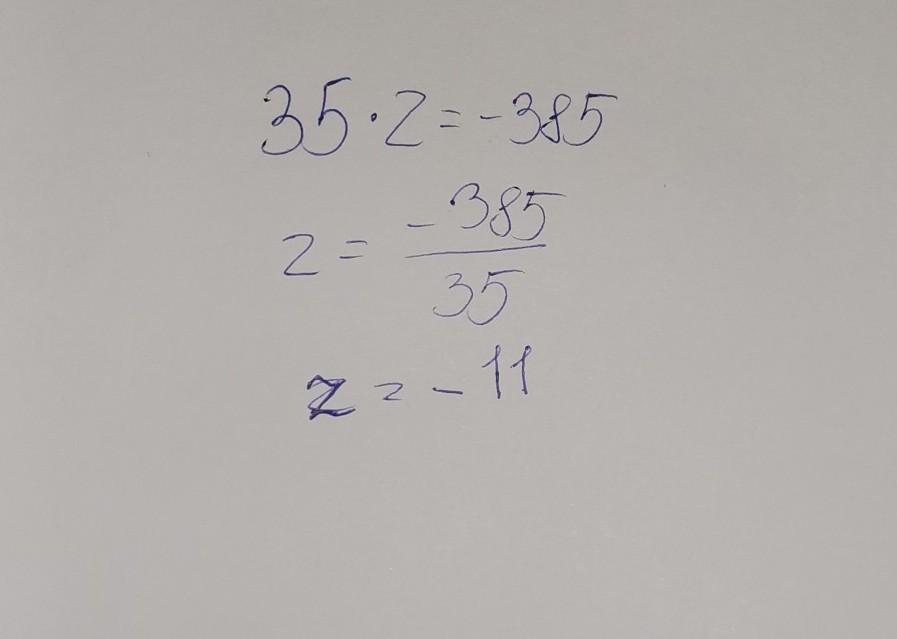 35 · z = -385
z = -385/35
z = -11